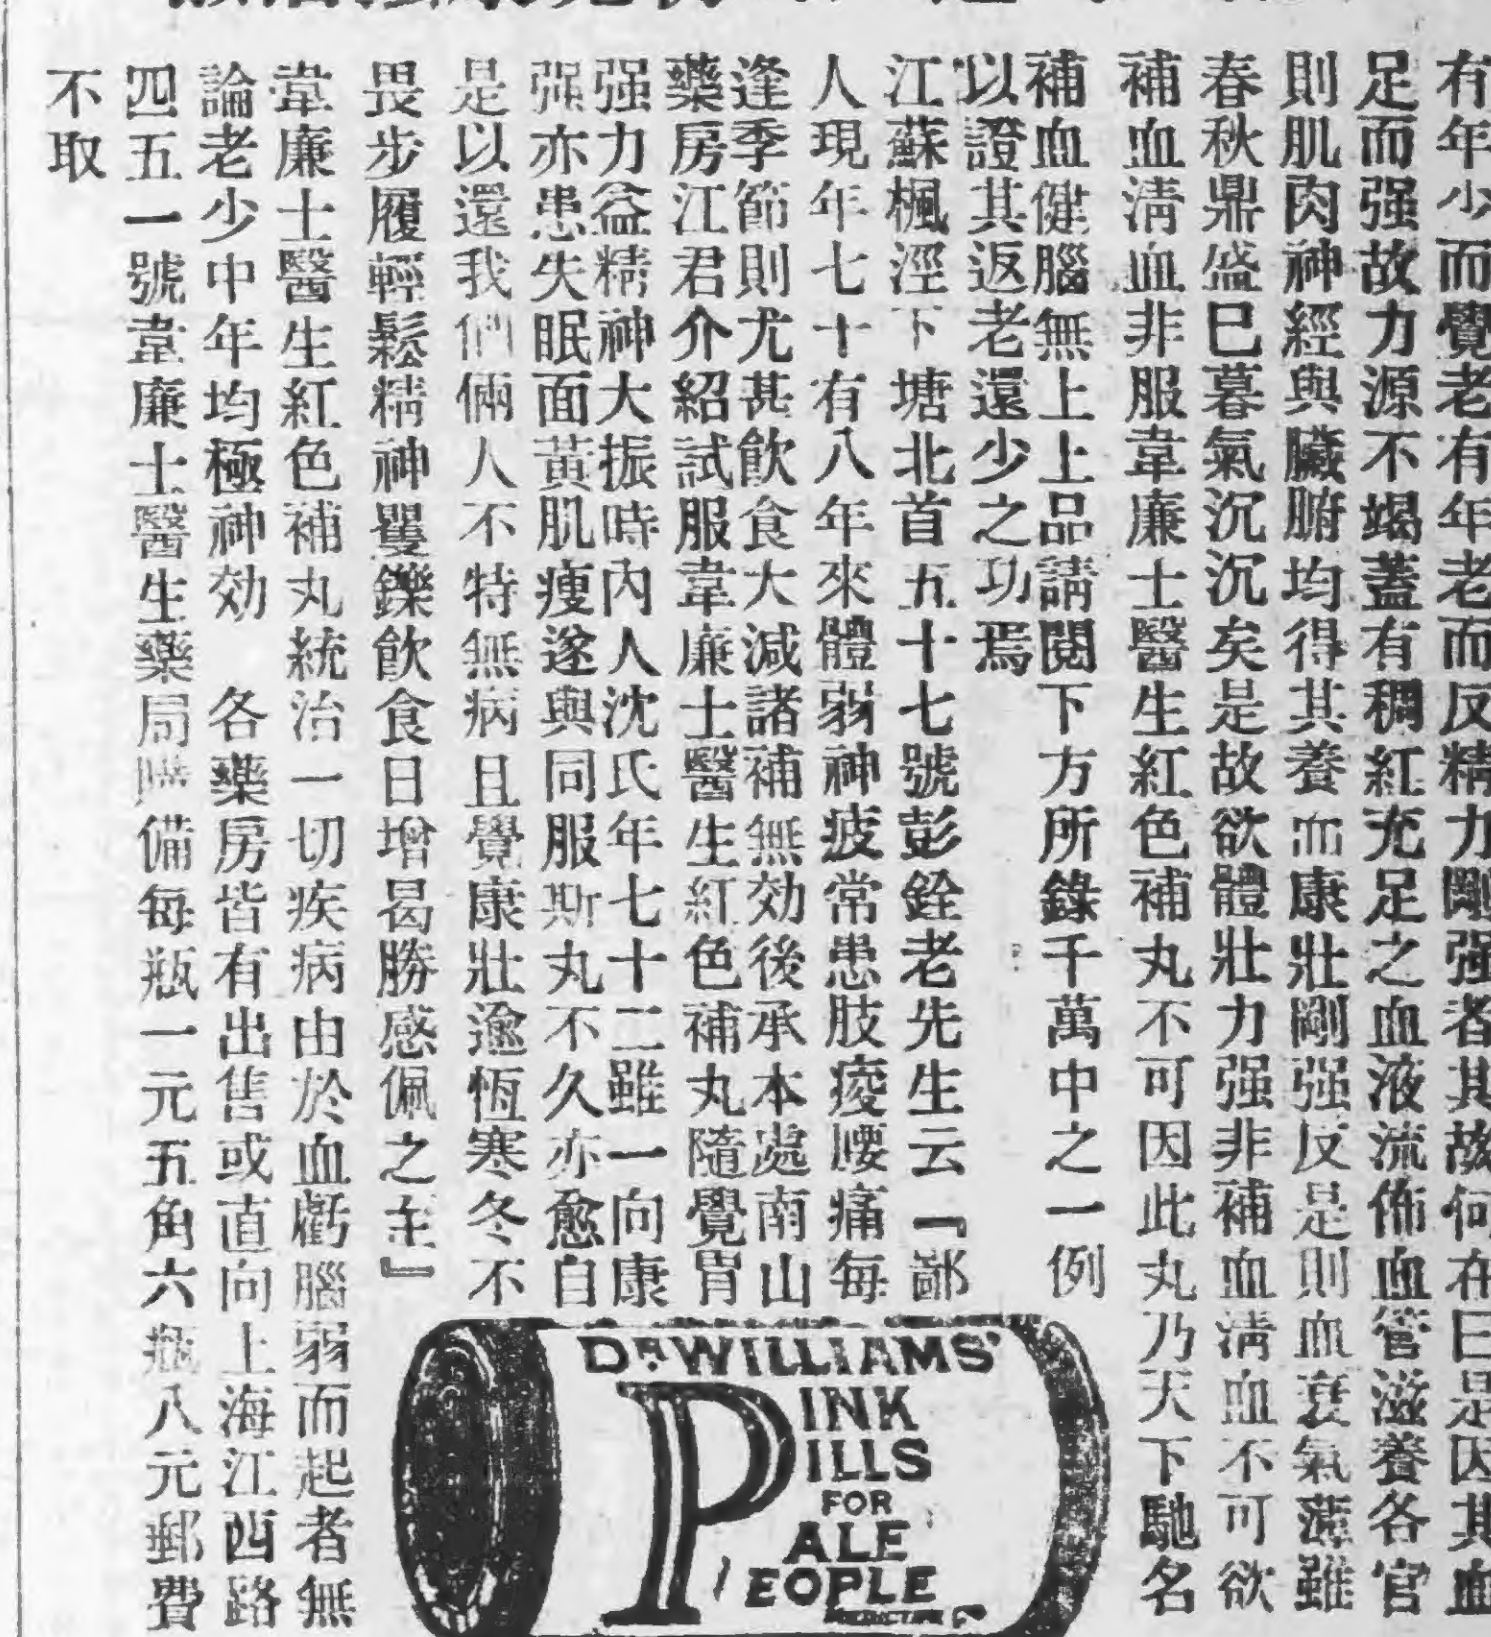 有年少而覺老有年老而反精力剛强者其故何在曰是因其血
足而强故力源不竭蓋有稠紅充足之血液流佈血管滋養各官
則肌肉神經與臟腑均得其養而康壯剛强反是則血衰氣薄雖
春秋鼎盛巳暮氣沉沉矣是故欲體壯力强非補血淸血不可欲
補血淸血非服韋廉士醫生紅色補丸不可因此丸乃天下馳名
補血健腦無上上品請閱下方所錄千萬中之一例
以證其返老還少之功焉
江蘇楓涇下塘北首五十七號彭銓老先生云『鄙
人現年七十有八年來體弱神疲常患肢痠腰痛每
逢季節則尤甚飮食大減諸補無効後承本處南山
藥房江君介紹試服韋廉士醫生紅色補丸隨覺胃
强力益精神大振時內人沈氏年七十二雖一向康
强亦患失眠面黃肌瘦遂與同服斯丸不久亦愈自
是以還我們倆人不特無病且覺康壯逾恆寒冬不
畏步履輕鬆精神矍鑠飮食日增曷勝感佩之至』
韋廉士醫生紅色補丸統治一切疾病由於血虧腦弱而起者無
論老少中年均極神効 各藥房皆有出售或直向上海江西路
四五一號韋廉士醫生藥局購備每瓶一元五角六瓶八元郵費
不取
DR WILLIAMS'
PINK
PILLS
FOR
PALE
PEOPLE